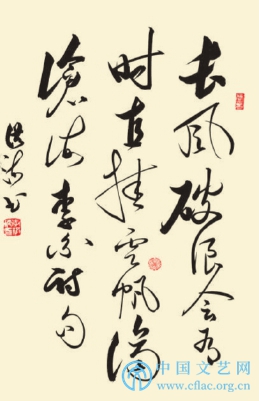 长风破浪会有
时直挂云帆济
沧海 李白诗句
书
中国文艺网
www.cflac.org.cn